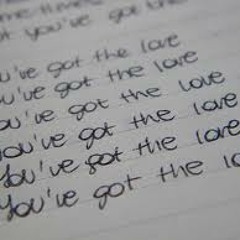 you've got
u've got the love
u've got the love
ou've got the love
you've got the love
You've got the love
You've got the lo